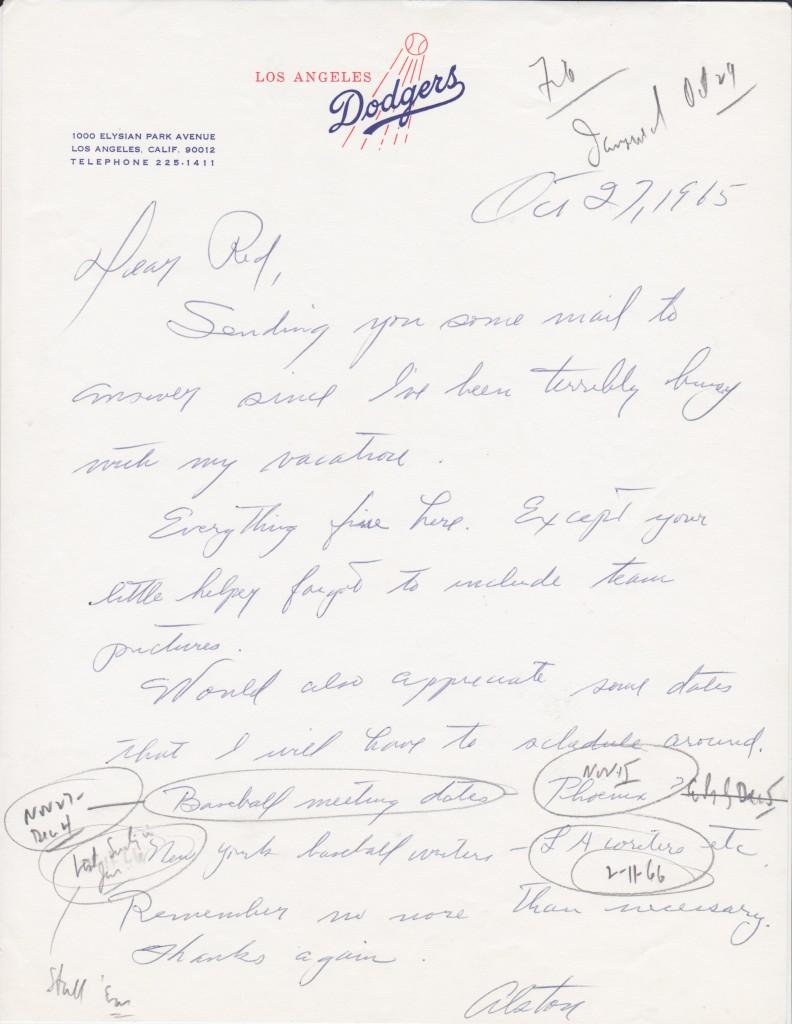 LOS ANGELES
Dodgers
1000 ELYSIAN PARK AVENUE
LOS ANGELES, CALIF. 90012
TELEPHONE 225-1411
Feb
Oct 29
Oct 27, 1965
Dear Red,
Sending you some mail to
answer since I've been terribly busy
with my vacation.
Everything fine here. Except your
little helper forgot to include team
pictures.
Would also appreciate some dates
that I will have to schedule around.
NOV 27-
DEC 4
Baseball meeting dates -
NOV 5
Phoenix ?
Dec 5
Last Sunday in
Jan
New York baseball writers - L A writers etc
2-11-66
Remember no more than necessary.
Thanks again.
Stall 'Em
Alston